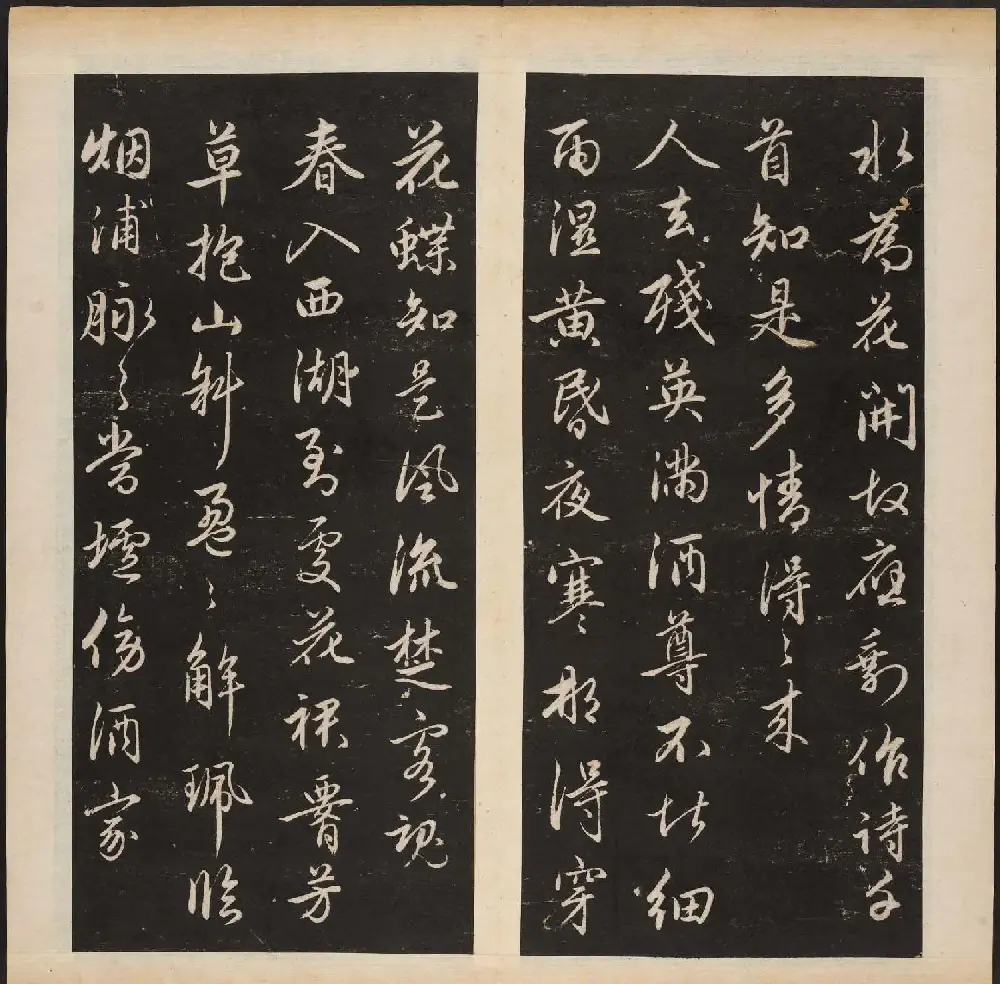 水為花開故應剩作詩千
首知是多情得得來
人去殘英滿酒尊不堪細
雨濕黃昏夜寒那得穿
花蝶知是風流楚客魂
春入西湖到處花裙腰芳
草抱山斜盈盈解珮臨
烟浦脉脉當壚傍酒家